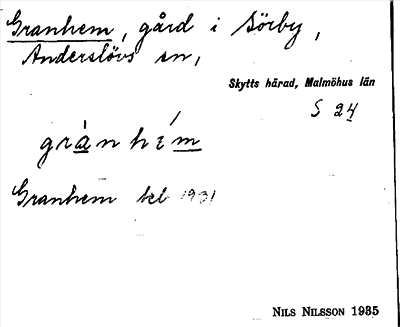 Granhem, gård i Sörby,
Anderslövs sn,
Skytts härad, Malmöhus län
S 24
grànhém
Granhem tel 1931
NILS NILSSON 1935